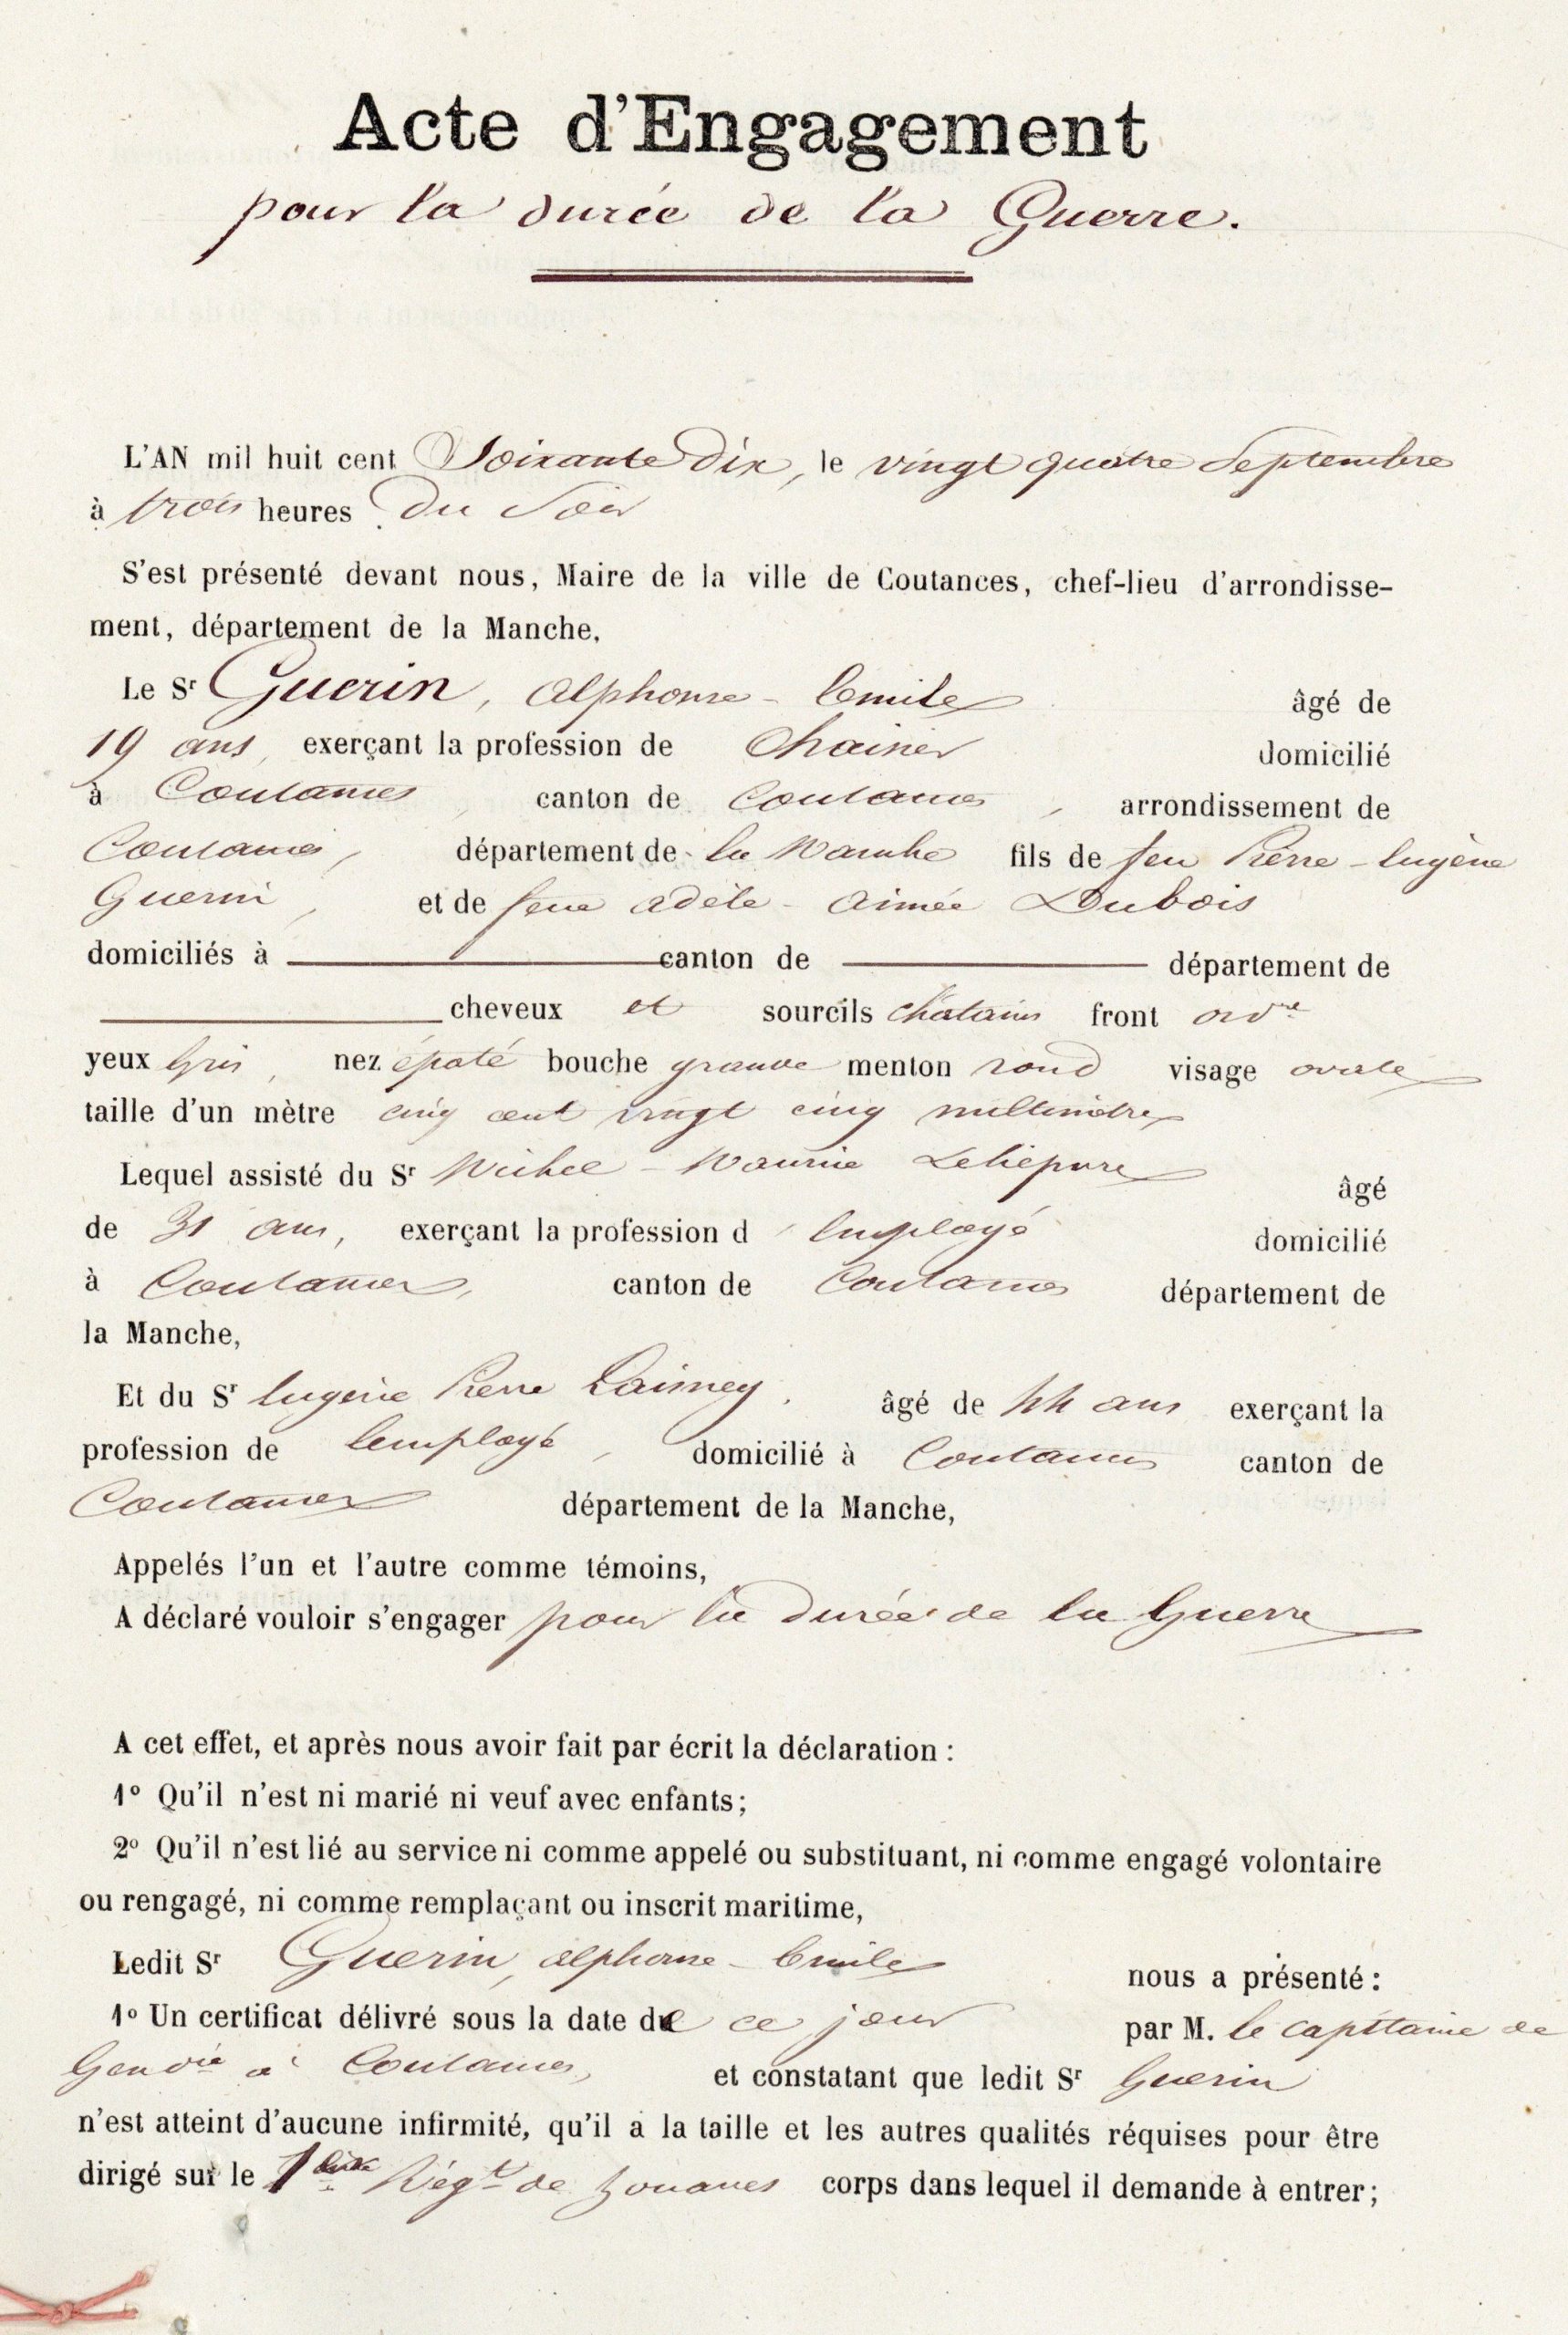 Acte d'Engagement
pour la durée de la Guerre.
L'AN mil huit cent Soixante Dix, le vingt quatre Septembre
à trois heures du Soir
S'est présenté devant nous, Maire de la ville de Coutances, chef-lieu d'arrondisse-
ment, département de la Manche,
Le Sr Guerin, Alphonse - Emile âgé de
19 ans, exerçant la profession de Chainier domicilié
à Coutances, canton de Coutances, arrondissement de
Coutances, département de la Manche fils de feu Pierre - Eugène
Guerin, et de feue Adèle - Aimée Dubois
domiciliés à canton de département de
cheveux et sourcils chatains front ordre
yeux Gris, nez épaté bouche grande menton rond visage ovale
taille d'un mètre cinq cent vingt cinq millimètres
Lequel assisté du Sr Michel - Maurice Leliepvre âgé
de 31 ans, exerçant la profession d Employé domicilié
à Coutances, canton de Coutances département de
la Manche,
Et du Sr Eugène Pierre Laisney, âgé de 44 ans exerçant la
profession de Employé, domicilié à Coutances canton de
Coutances département de la Manche,
Appelés l'un et l'autre comme témoins,
A déclaré vouloir s'engager pour la durée de la Guerre
A cet effet, et après nous avoir fait par écrit la déclaration :
1° Qu'il n'est ni marié ni veuf avec enfants;
2° Qu'il n'est lié au service ni comme appelé ou substituant, ni comme engagé volontaire
ou rengagé, ni comme remplaçant ou inscrit maritime,
Ledit Sr Guerin, Alphonse - Emile nous a présenté :
1° Un certificat délivré sous la date de ce jour par M. le capitaine de
Gendie à Coutances, et constatant que ledit Sr Guerin
n'est atteint d'aucune infirmité, qu'il a la taille et les autres qualités réquises pour être
dirigé sur le Régt de Zouaves corps dans lequel il demande à entrer;